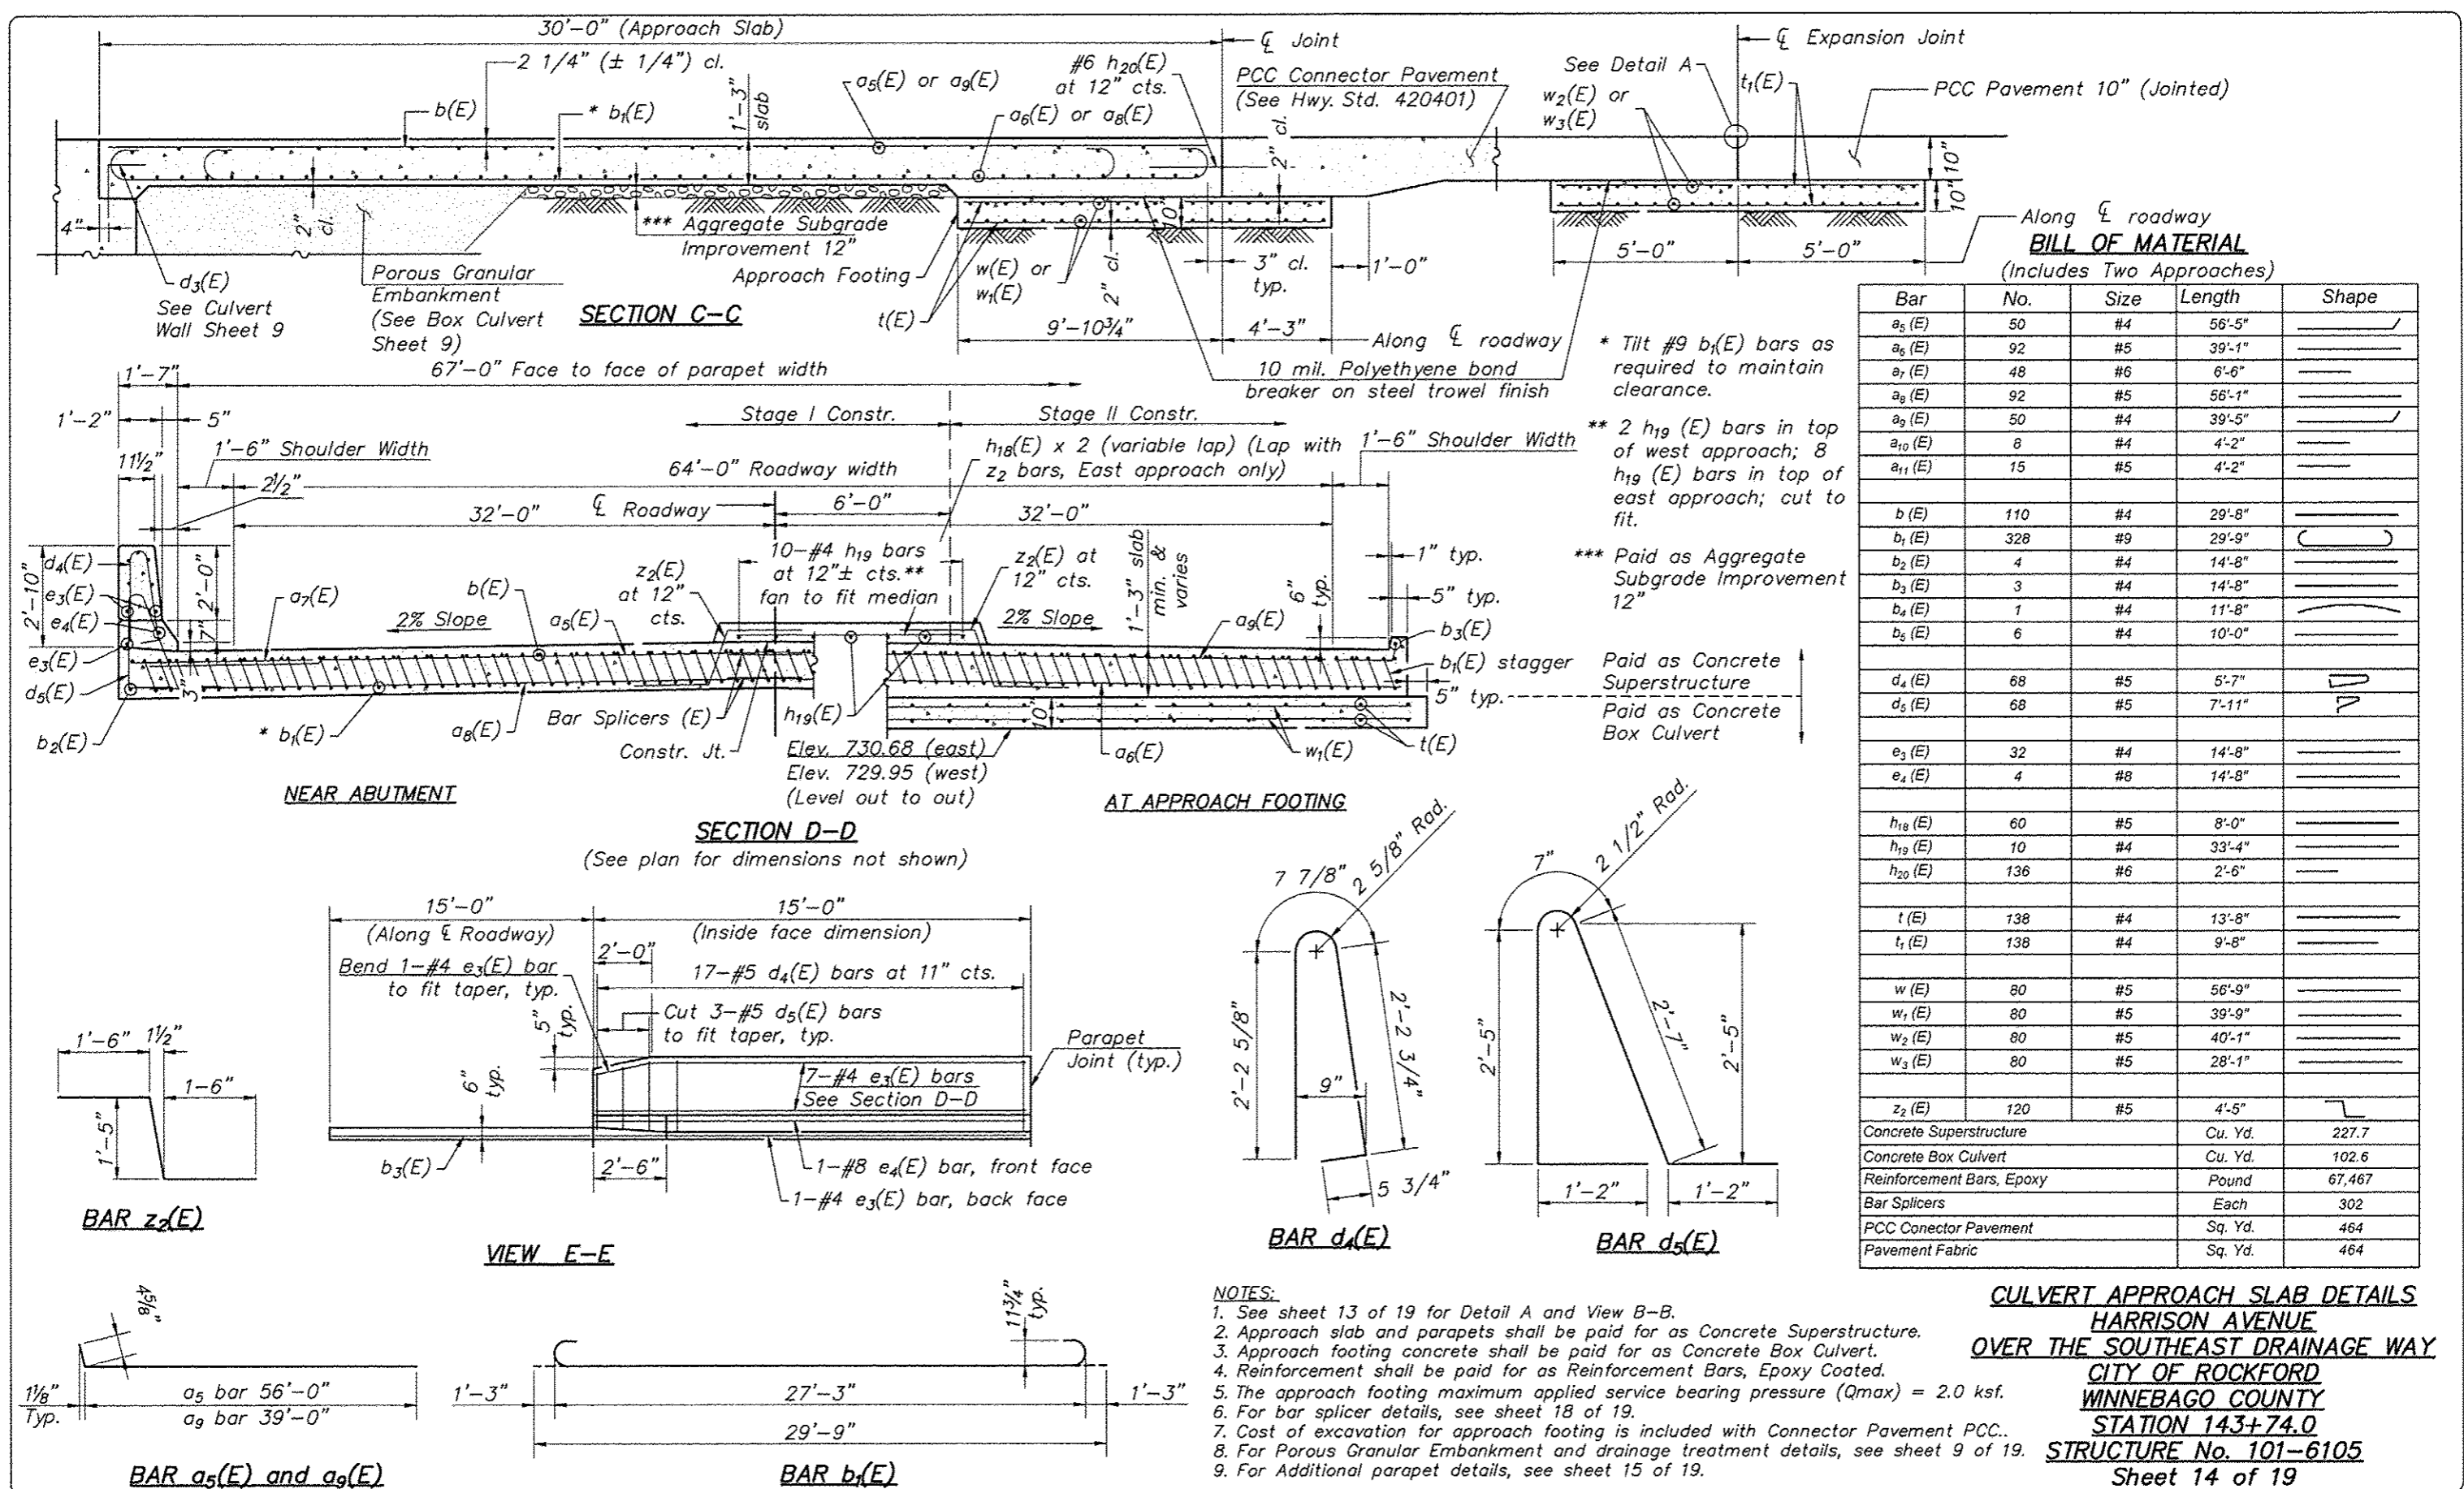 30'-0" (Approach Slab)
2 1/4" (± 1/4") cl.
b(E)
* b1(E)
1'-3" slab
a5(E) or a9(E)
#6 h20(E)
at 12" cts.
a6(E) or a8(E)
℄ Joint
PCC Connector Pavement
(See Hwy. Std. 420401)
See Detail A
w2(E) or
w3(E)
t1(E)
℄ Expansion Joint
PCC Pavement 10" (Jointed)
2" cl.
10"
10"
4"
2" cl.
d3(E)
See Culvert
Wall Sheet 9
Porous Granular
Embankment
(See Box Culvert
Sheet 9)
*** Aggregate Subgrade
Improvement 12"
Approach Footing
SECTION C-C
t(E)
w(E) or
w1(E)
10"
2" cl.
3" cl.
typ.
1'-0"
9'-10¾"
4'-3"
Along ℄ roadway
5'-0"
5'-0"
Along ℄ roadway
10 mil. Polyethyene bond
breaker on steel trowel finish
* Tilt #9 b1(E) bars as
required to maintain
clearance.
** 2 h19 (E) bars in top
of west approach; 8
h19 (E) bars in top of
east approach; cut to
fit.
*** Paid as Aggregate
Subgrade Improvement
12"
1'-7"
67'-0" Face to face of parapet width
1'-2"
5"
Stage I Constr.
Stage II Constr.
11½"
1'-6" Shoulder Width
2½"
64'-0" Roadway width
h18(E) x 2 (variable lap) (Lap with
z2 bars, East approach only)
1'-6" Shoulder Width
32'-0"
℄ Roadway
6'-0"
32'-0"
2'-10"
d4(E)
e3(E)
e4(E)
e3(E)
d5(E)
b2(E)
2'-0"
7"
3"
a7(E)
2% Slope
b(E)
a5(E)
z2(E)
at 12"
cts.
10-#4 h19 bars
at 12"± cts.**
fan to fit median
z2(E) at
12" cts.
2% Slope
1'-3" slab
min. &
varies
a9(E)
6"
typ.
1" typ.
5" typ.
b3(E)
b1(E) stagger
5" typ.
Paid as Concrete
Superstructure
Paid as Concrete
Box Culvert
* b1(E)
a8(E)
Bar Splicers (E)
Constr. Jt.
h19(E)
Elev. 730.68 (east)
Elev. 729.95 (west)
(Level out to out)
10"
a6(E)
w1(E)
t(E)
NEAR ABUTMENT
AT APPROACH FOOTING
SECTION D-D
(See plan for dimensions not shown)
15'-0"
(Along ℄ Roadway)
15'-0"
(Inside face dimension)
Bend 1-#4 e3(E) bar
to fit taper, typ.
2'-0"
17-#5 d4(E) bars at 11" cts.
5"
typ.
Cut 3-#5 d5(E) bars
to fit taper, typ.
Parapet
Joint (typ.)
6"
typ.
7-#4 e3(E) bars
See Section D-D
b3(E)
2'-6"
1-#8 e4(E) bar, front face
1-#4 e3(E) bar, back face
VIEW E-E
1'-6"
1½"
1-6"
1'-5"
BAR z2(E)
7 7/8"
2 5/8" Rad.
2'-2 5/8"
9"
2'-2 3/4"
5 3/4"
BAR d4(E)
7"
2 1/2" Rad.
2'-5"
2'-7"
2'-5"
1'-2"
1'-2"
BAR d5(E)
4⅝"
1⅛"
Typ.
a5 bar 56'-0"
a9 bar 39'-0"
BAR a5(E) and a9(E)
11¾"
typ.
1'-3"
27'-3"
1'-3"
29'-9"
BAR b1(E)
BILL OF MATERIAL
(Includes Two Approaches)
Bar No. Size Length Shape
a5 (E) 50 #4 56'-5"
a6 (E) 92 #5 39'-1"
a7 (E) 48 #6 6'-6"
a8 (E) 92 #5 56'-1"
a9 (E) 50 #4 39'-5"
a10 (E) 8 #4 4'-2"
a11 (E) 15 #5 4'-2"
b (E) 110 #4 29'-8"
b1 (E) 328 #9 29'-9"
b2 (E) 4 #4 14'-8"
b3 (E) 3 #4 14'-8"
b4 (E) 1 #4 11'-8"
b5 (E) 6 #4 10'-0"
d4 (E) 68 #5 5'-7"
d5 (E) 68 #5 7'-11"
e3 (E) 32 #4 14'-8"
e4 (E) 4 #8 14'-8"
h18 (E) 60 #5 8'-0"
h19 (E) 10 #4 33'-4"
h20 (E) 136 #6 2'-6"
t (E) 138 #4 13'-8"
t1 (E) 138 #4 9'-8"
w (E) 80 #5 56'-9"
w1 (E) 80 #5 39'-9"
w2 (E) 80 #5 40'-1"
w3 (E) 80 #5 28'-1"
z2 (E) 120 #5 4'-5"
Concrete Superstructure Cu. Yd. 227.7
Concrete Box Culvert Cu. Yd. 102.6
Reinforcement Bars, Epoxy Pound 67,467
Bar Splicers Each 302
PCC Conector Pavement Sq. Yd. 464
Pavement Fabric Sq. Yd. 464
NOTES:
1. See sheet 13 of 19 for Detail A and View B-B.
2. Approach slab and parapets shall be paid for as Concrete Superstructure.
3. Approach footing concrete shall be paid for as Concrete Box Culvert.
4. Reinforcement shall be paid for as Reinforcement Bars, Epoxy Coated.
5. The approach footing maximum applied service bearing pressure (Qmax) = 2.0 ksf.
6. For bar splicer details, see sheet 18 of 19.
7. Cost of excavation for approach footing is included with Connector Pavement PCC..
8. For Porous Granular Embankment and drainage treatment details, see sheet 9 of 19.
9. For Additional parapet details, see sheet 15 of 19.
CULVERT APPROACH SLAB DETAILS
HARRISON AVENUE
OVER THE SOUTHEAST DRAINAGE WAY
CITY OF ROCKFORD
WINNEBAGO COUNTY
STATION 143+74.0
STRUCTURE No. 101-6105
Sheet 14 of 19